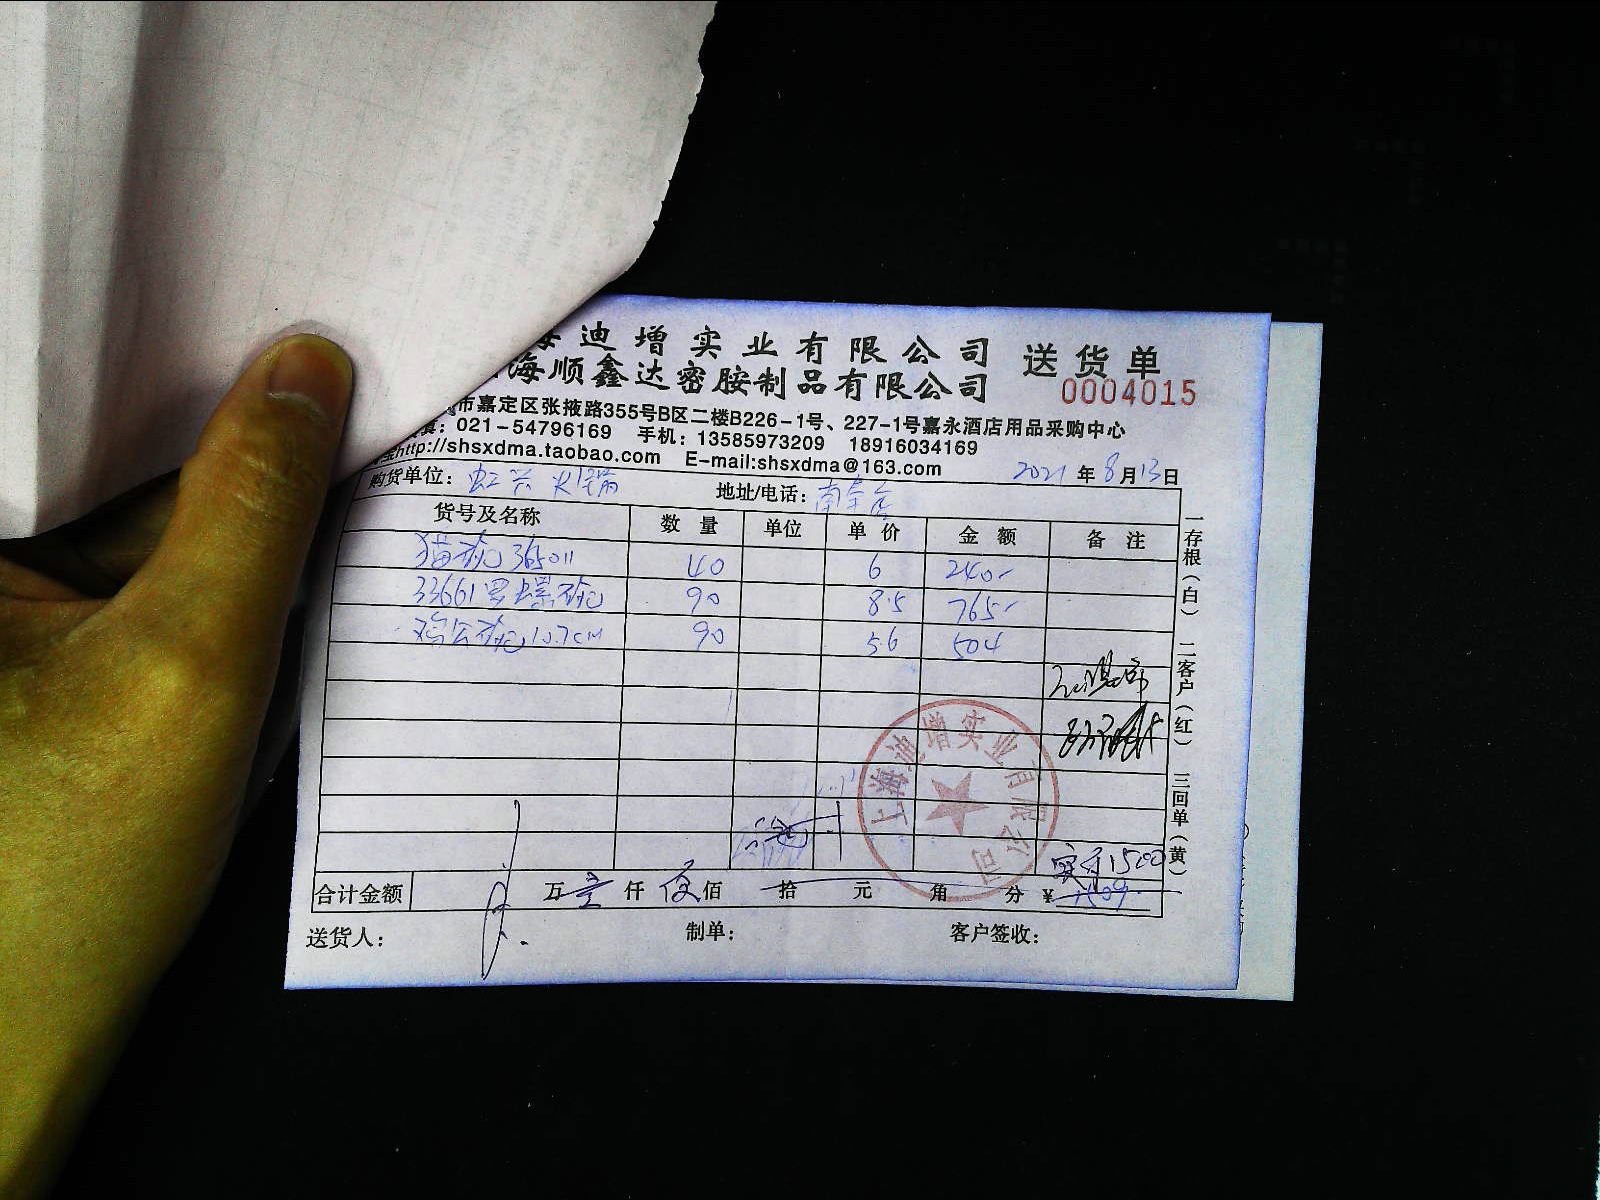 迪增实业有限公司 送货单
海顺鑫达密胺制品有限公司 0004015
市嘉定区张掖路355号B区二楼B226-1号、227-1号嘉永酒店用品采购中心
真：021-54796169 手机：13585973209 18916034169
http://shsxdma.taobao.com E-mail:shsxdma@163.com 2021年8月13日
购货单位：虹兴火锅 地址/电话：
货号及名称 数量 单位 单价 金额 备注
猫碗 36511 40 6 240-
33661罗螺碗 90 8.5 765-
鸡公碗10.7cm 90 5.6 504
上海迪增实业有限公司
实付1500
合计金额 万壹仟伍佰 拾 元 角 分 ¥1509
送货人： 制单： 客户签收：
一存根（白） 二客户（红） 三回单（黄）